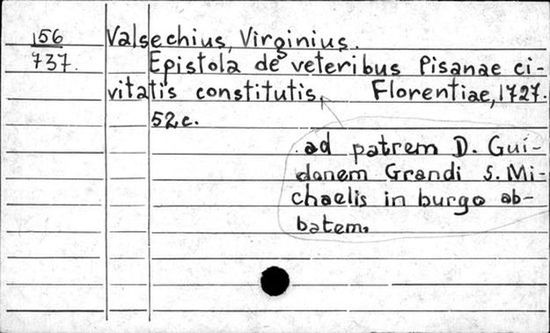 156
737.
Valsechius, Virginius.
Epistola de veteribus Pisanae ci-
vitatis constitutis, Florentiae, 1727.
52 c.
ad patrem D. Gui-
donem Grandi S. Mi-
chaelis in burgo ab-
batem,